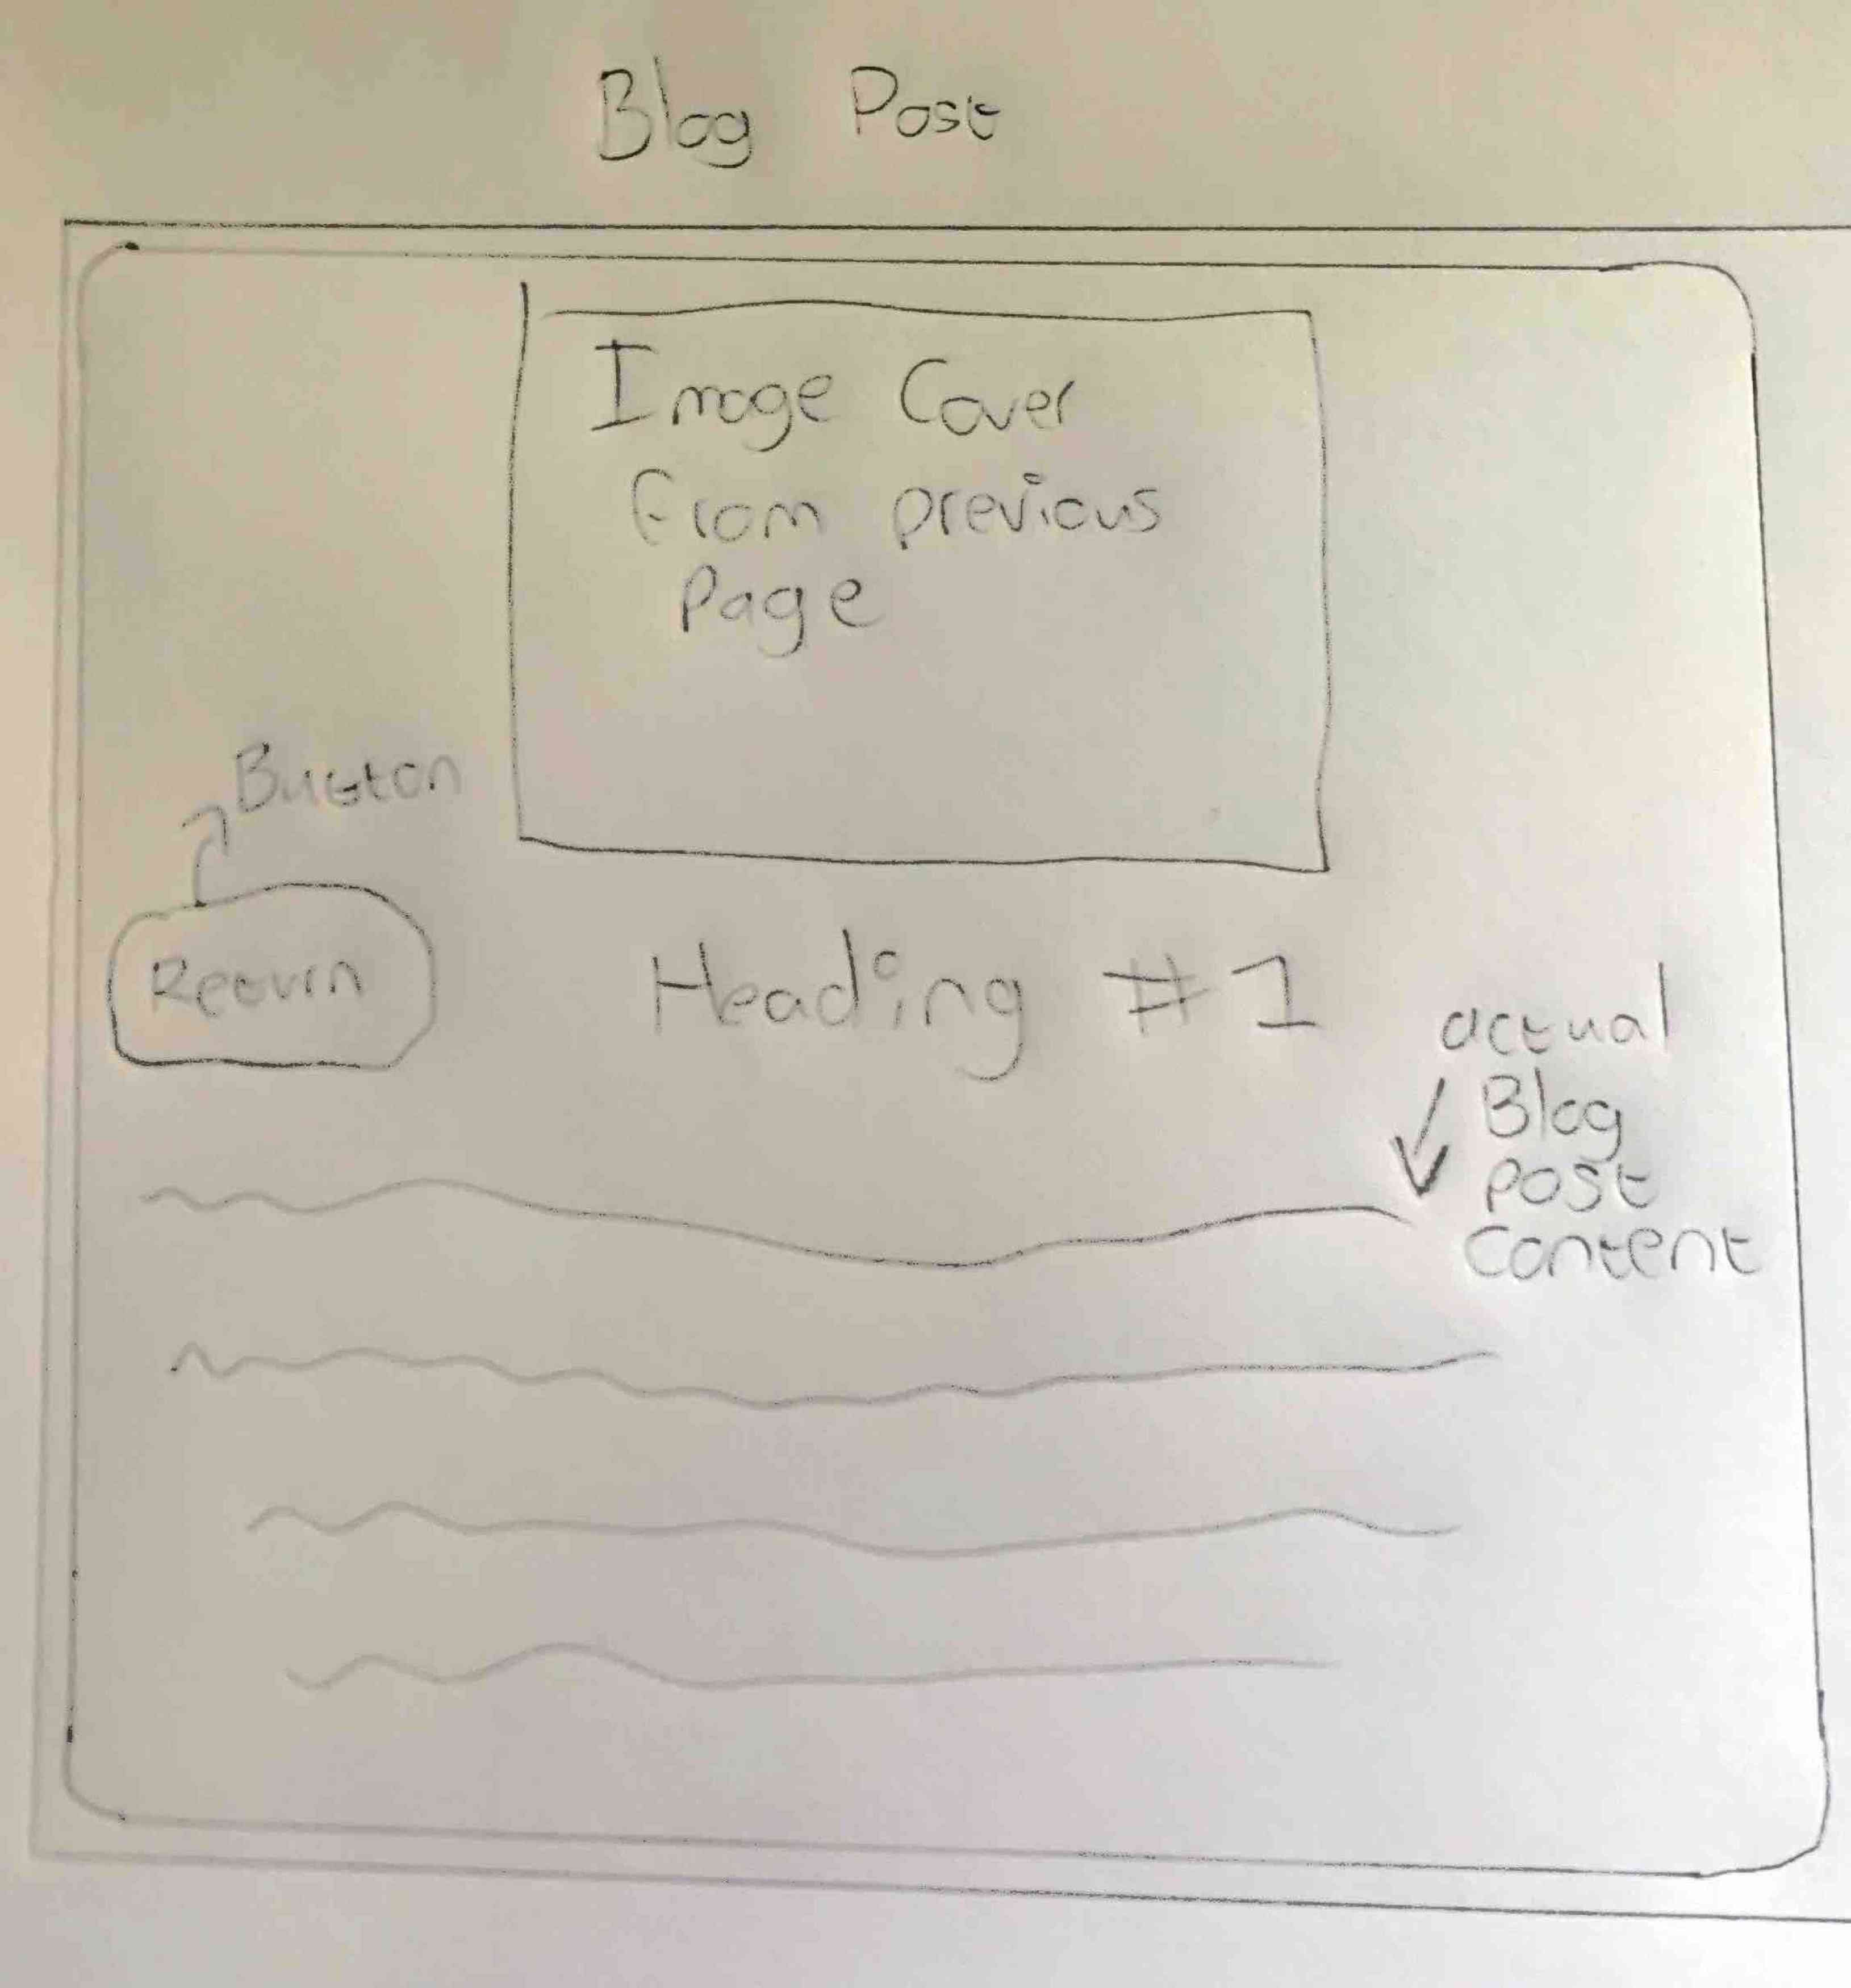 Blog Post
Image Cover
From previous
Page
Button
Return
Heading #1
actual
Blog
Post
Content